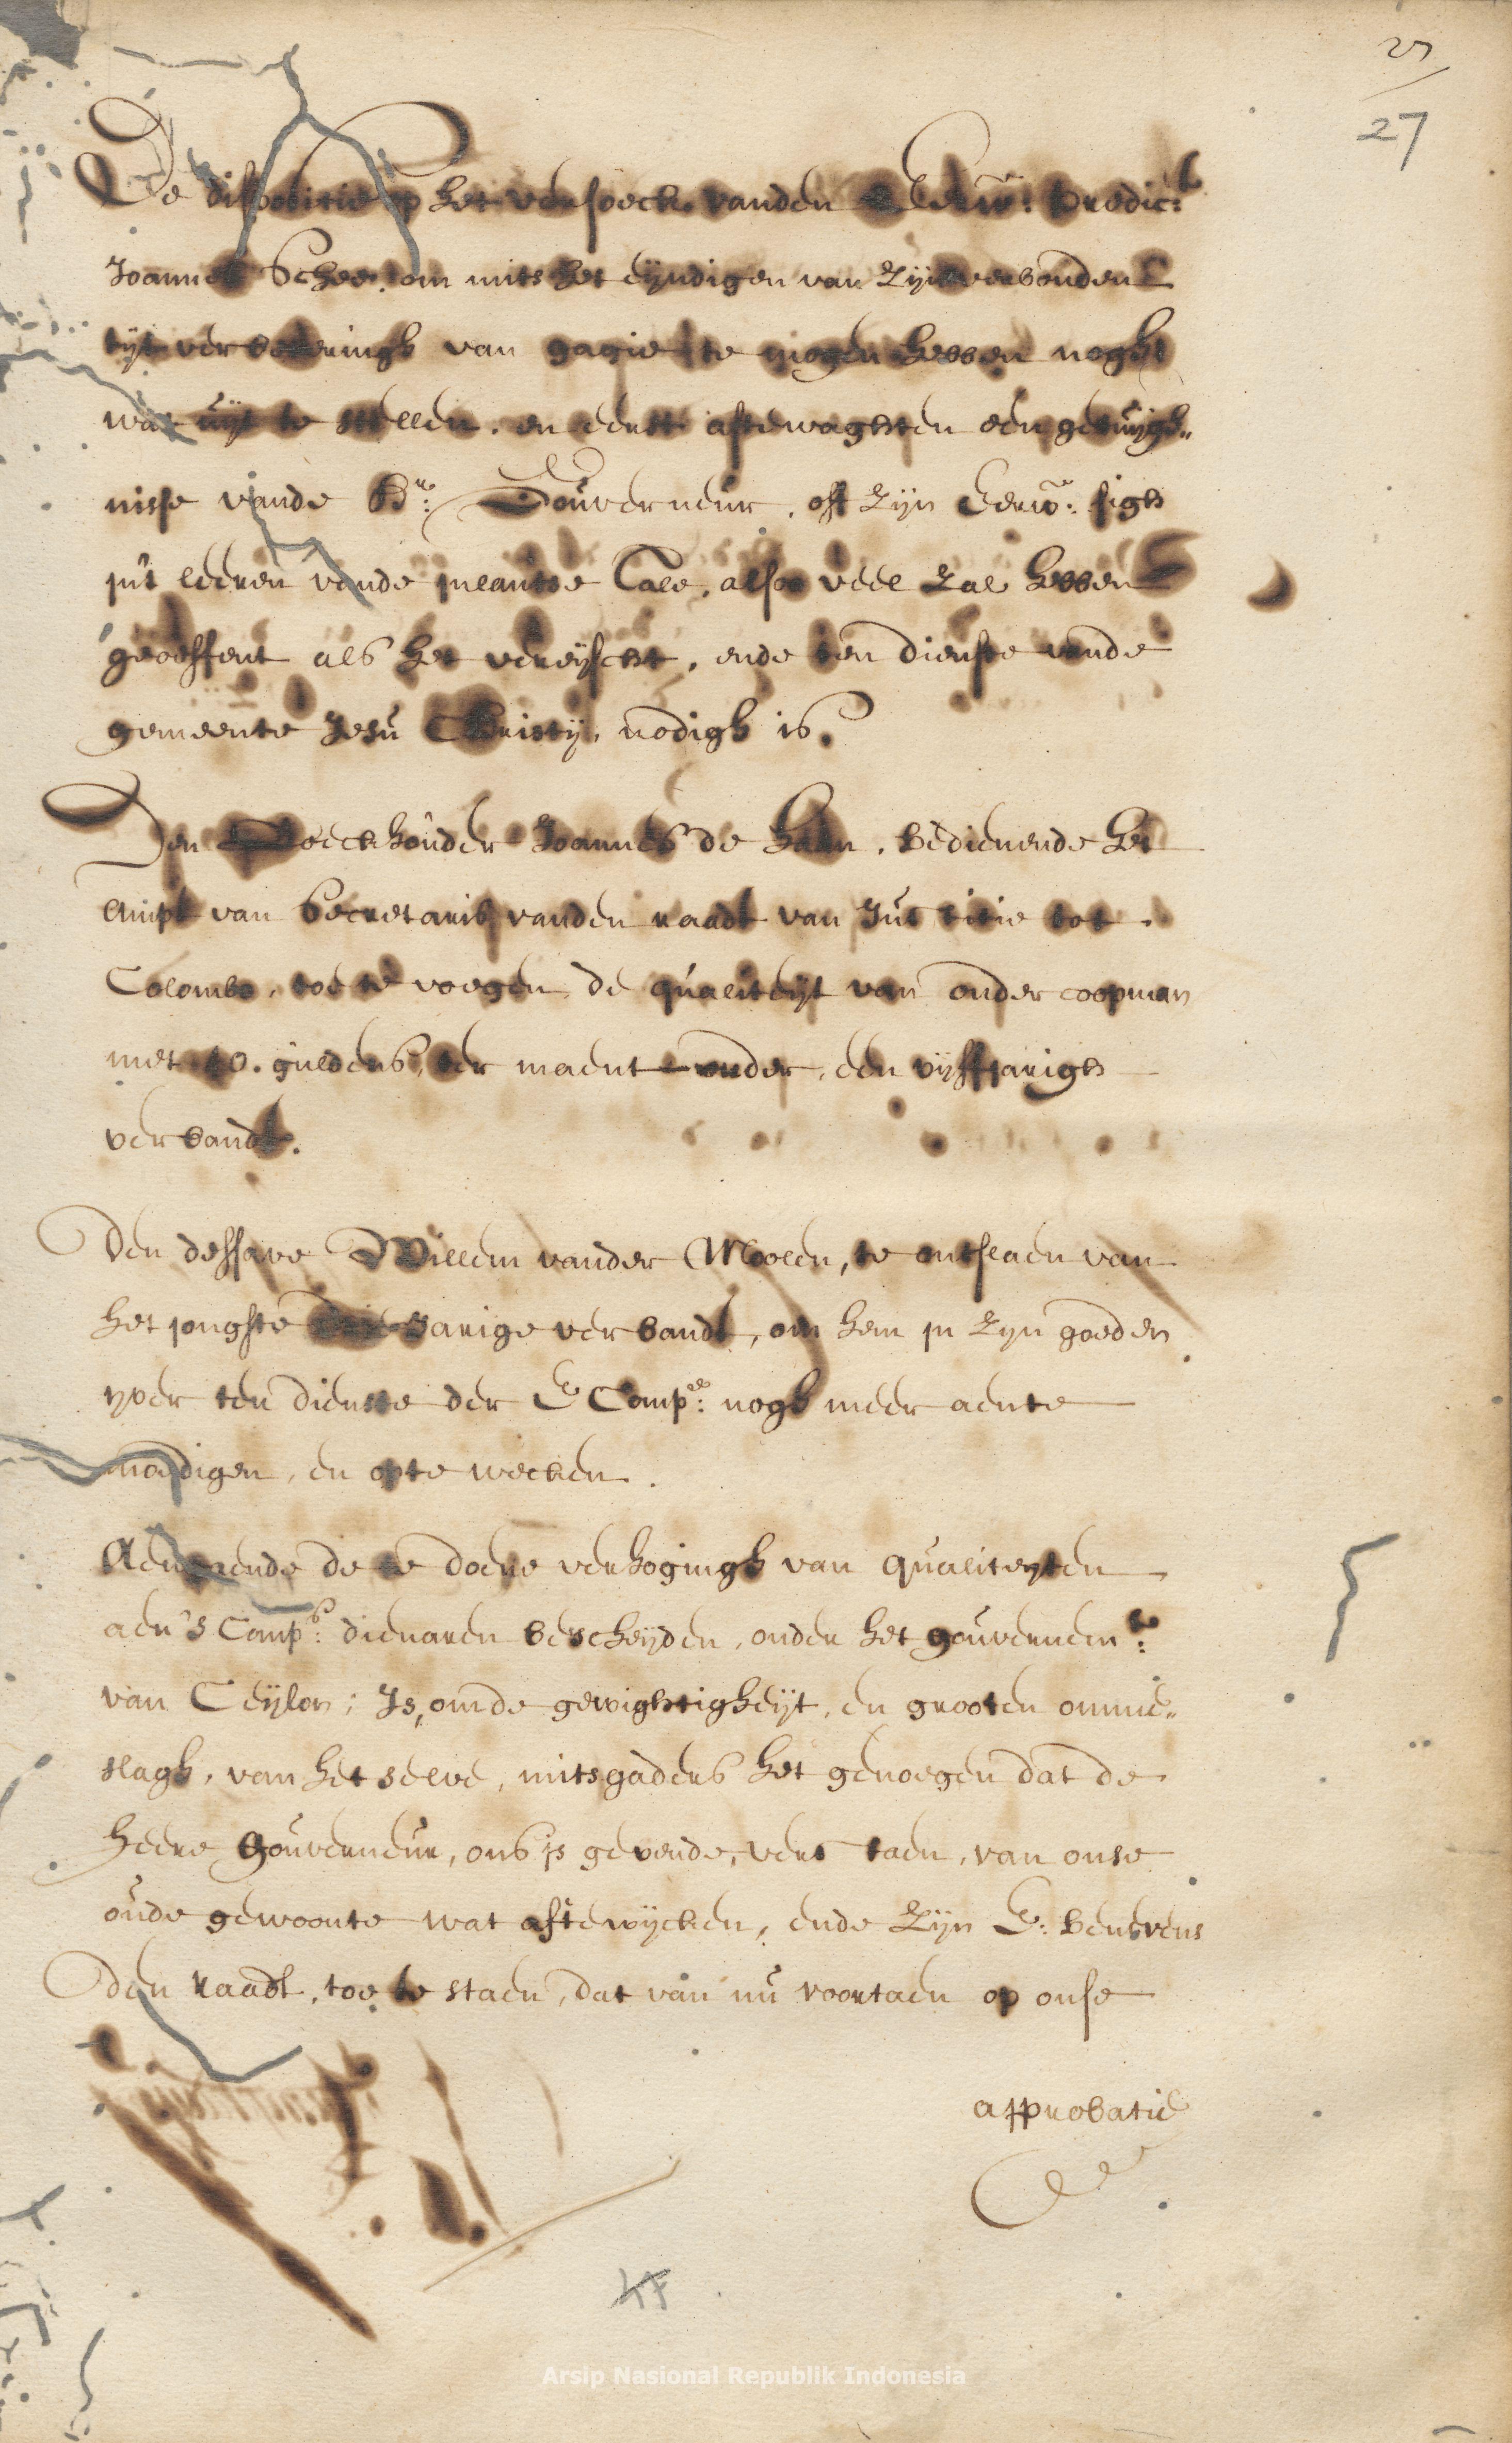 27
27
De dispositie op het versoeck vanden Eerw: Predict:
Joannes Schee, om mits het eyndigen van Zijn verbonden
tijt verbeteringh van gagie te mogen hebben, noght
wat uijt te stellen, en eerst aftewaghten een getuijge„
nisse vande Hr: Gouverneur, off Zijn Eerw: sigh
jnt leeren vande jnlantse Tale, alsoo veel Zal hebben
geoeffent als het vereijscht, ende ten dienste vande
gemeente Jesu Christij, nodigh is.
Den Boeckhouder Joannes de Haen, bedienende het
Ampt van Secretaris vanden raadt van Justitie tot
Colombo, toe te voegen, de qualiteijt van ondercoopman
met 40. guldens, ter maent onder, een vijffjarigh
verbandt.
Den dessave Willem vander Moolen, te ontslaen van
het jongste Jarige verbandt, om hem jn Zijn goeden
yver ten dienste der E Compe: nogh meer aente
moedigen, en opte wecken.
Aengaende de te doene verhogingh van qualiteyten
aen 's Comps: dienaren bescheijden, onder het gouvernemt:
van Ceijlon; Is, om de gewightigheijt, en grooten omme„
slagh, van het selve, mitsgaders het genoegen dat de
Heere Gouverneur, ons js gevende, verstaen, van onse
oude gewoonte wat aftewijcken, ende Zijn E: benevens
den raadt, toe te staen, dat van nu voortaen op onse
approbatie
Arsip Nasional Republik Indonesia